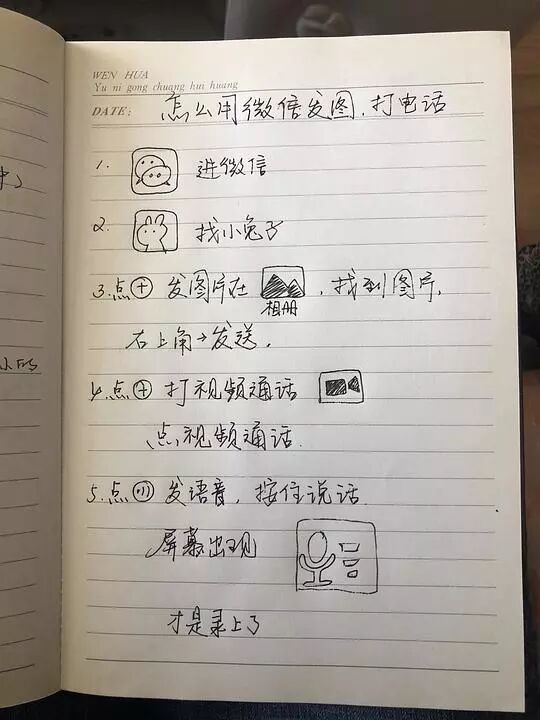 WEN HUA
Yu ni gong chuang hui huang
DATE: 怎么用微信发图,打电话
1. 进微信
2. 找小兔子
3.点⊕ 发图片在 ,找到图片,
相册
右上角→发送.
4.点⊕ 打视频通话
点视频通话.
5.点 发语音,按住说话
屏幕出现
才是录上了